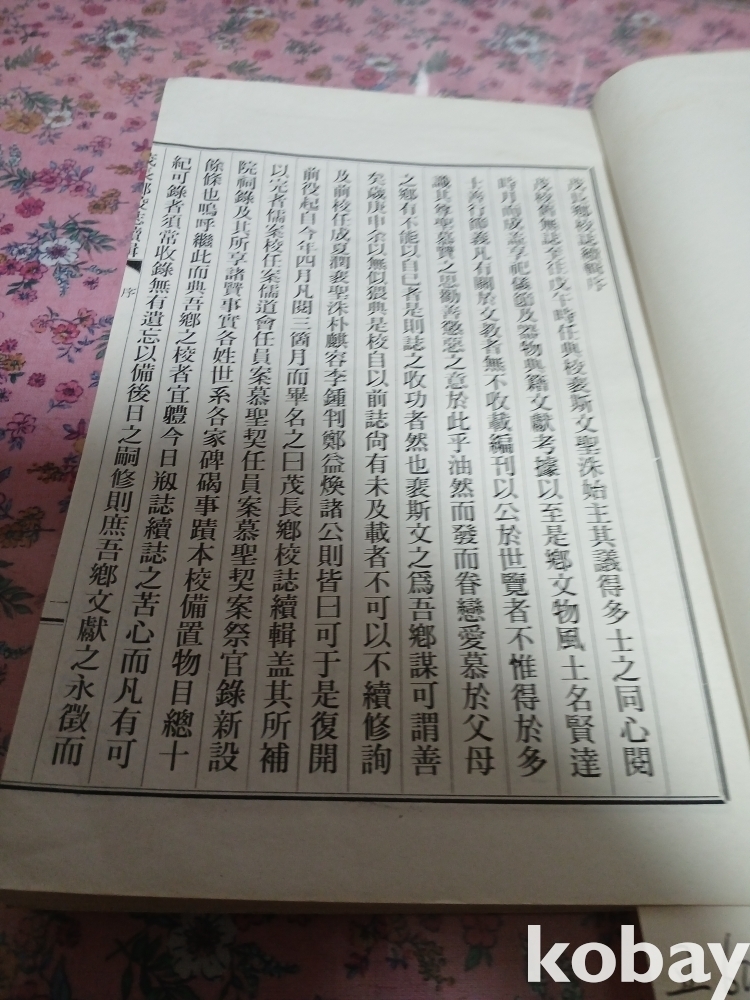 茂長鄕校誌續輯序
茂校舊無誌至往戊午時任典校裵斯文聖洙始主其議得多士之同心閱
時月而成盖享祀儀節及器物典籍文獻考據以至是鄕文物風土名賢達
士善行節義凡有關於文教者無不收載編刊以公於世覽者不惟得於多
識其尊聖慕賢之思勸善懲惡之意於此乎油然而發而眷戀愛慕於父母
之鄕有不能以自已者是則誌之收功者然也裵斯文之爲吾鄕謀可謂善
矣歲庚申余以無似猥典是校自以前誌尙有未及載者不可以不續修詢
及前校任成夏潤裵聖洙朴麒容李鍾判鄭益煥諸公則皆曰可于是復開
前役起自今年四月凡閱三箇月而畢名之曰茂長鄕校誌續輯盖其所補
以完者儒案校任案儒道會任員案慕聖契任員案慕聖契案祭官錄新設
院祠錄及其所享諸賢事實各姓世系各家碑碣事蹟本校備置物目總十
餘條也嗚呼繼此而典吾鄕之校者宜軆今日刱誌續誌之苦心而凡有可
紀可錄者須常收錄無有遺忘以備後日之嗣修則庶吾鄕文獻之永徵而
序
一
kobay